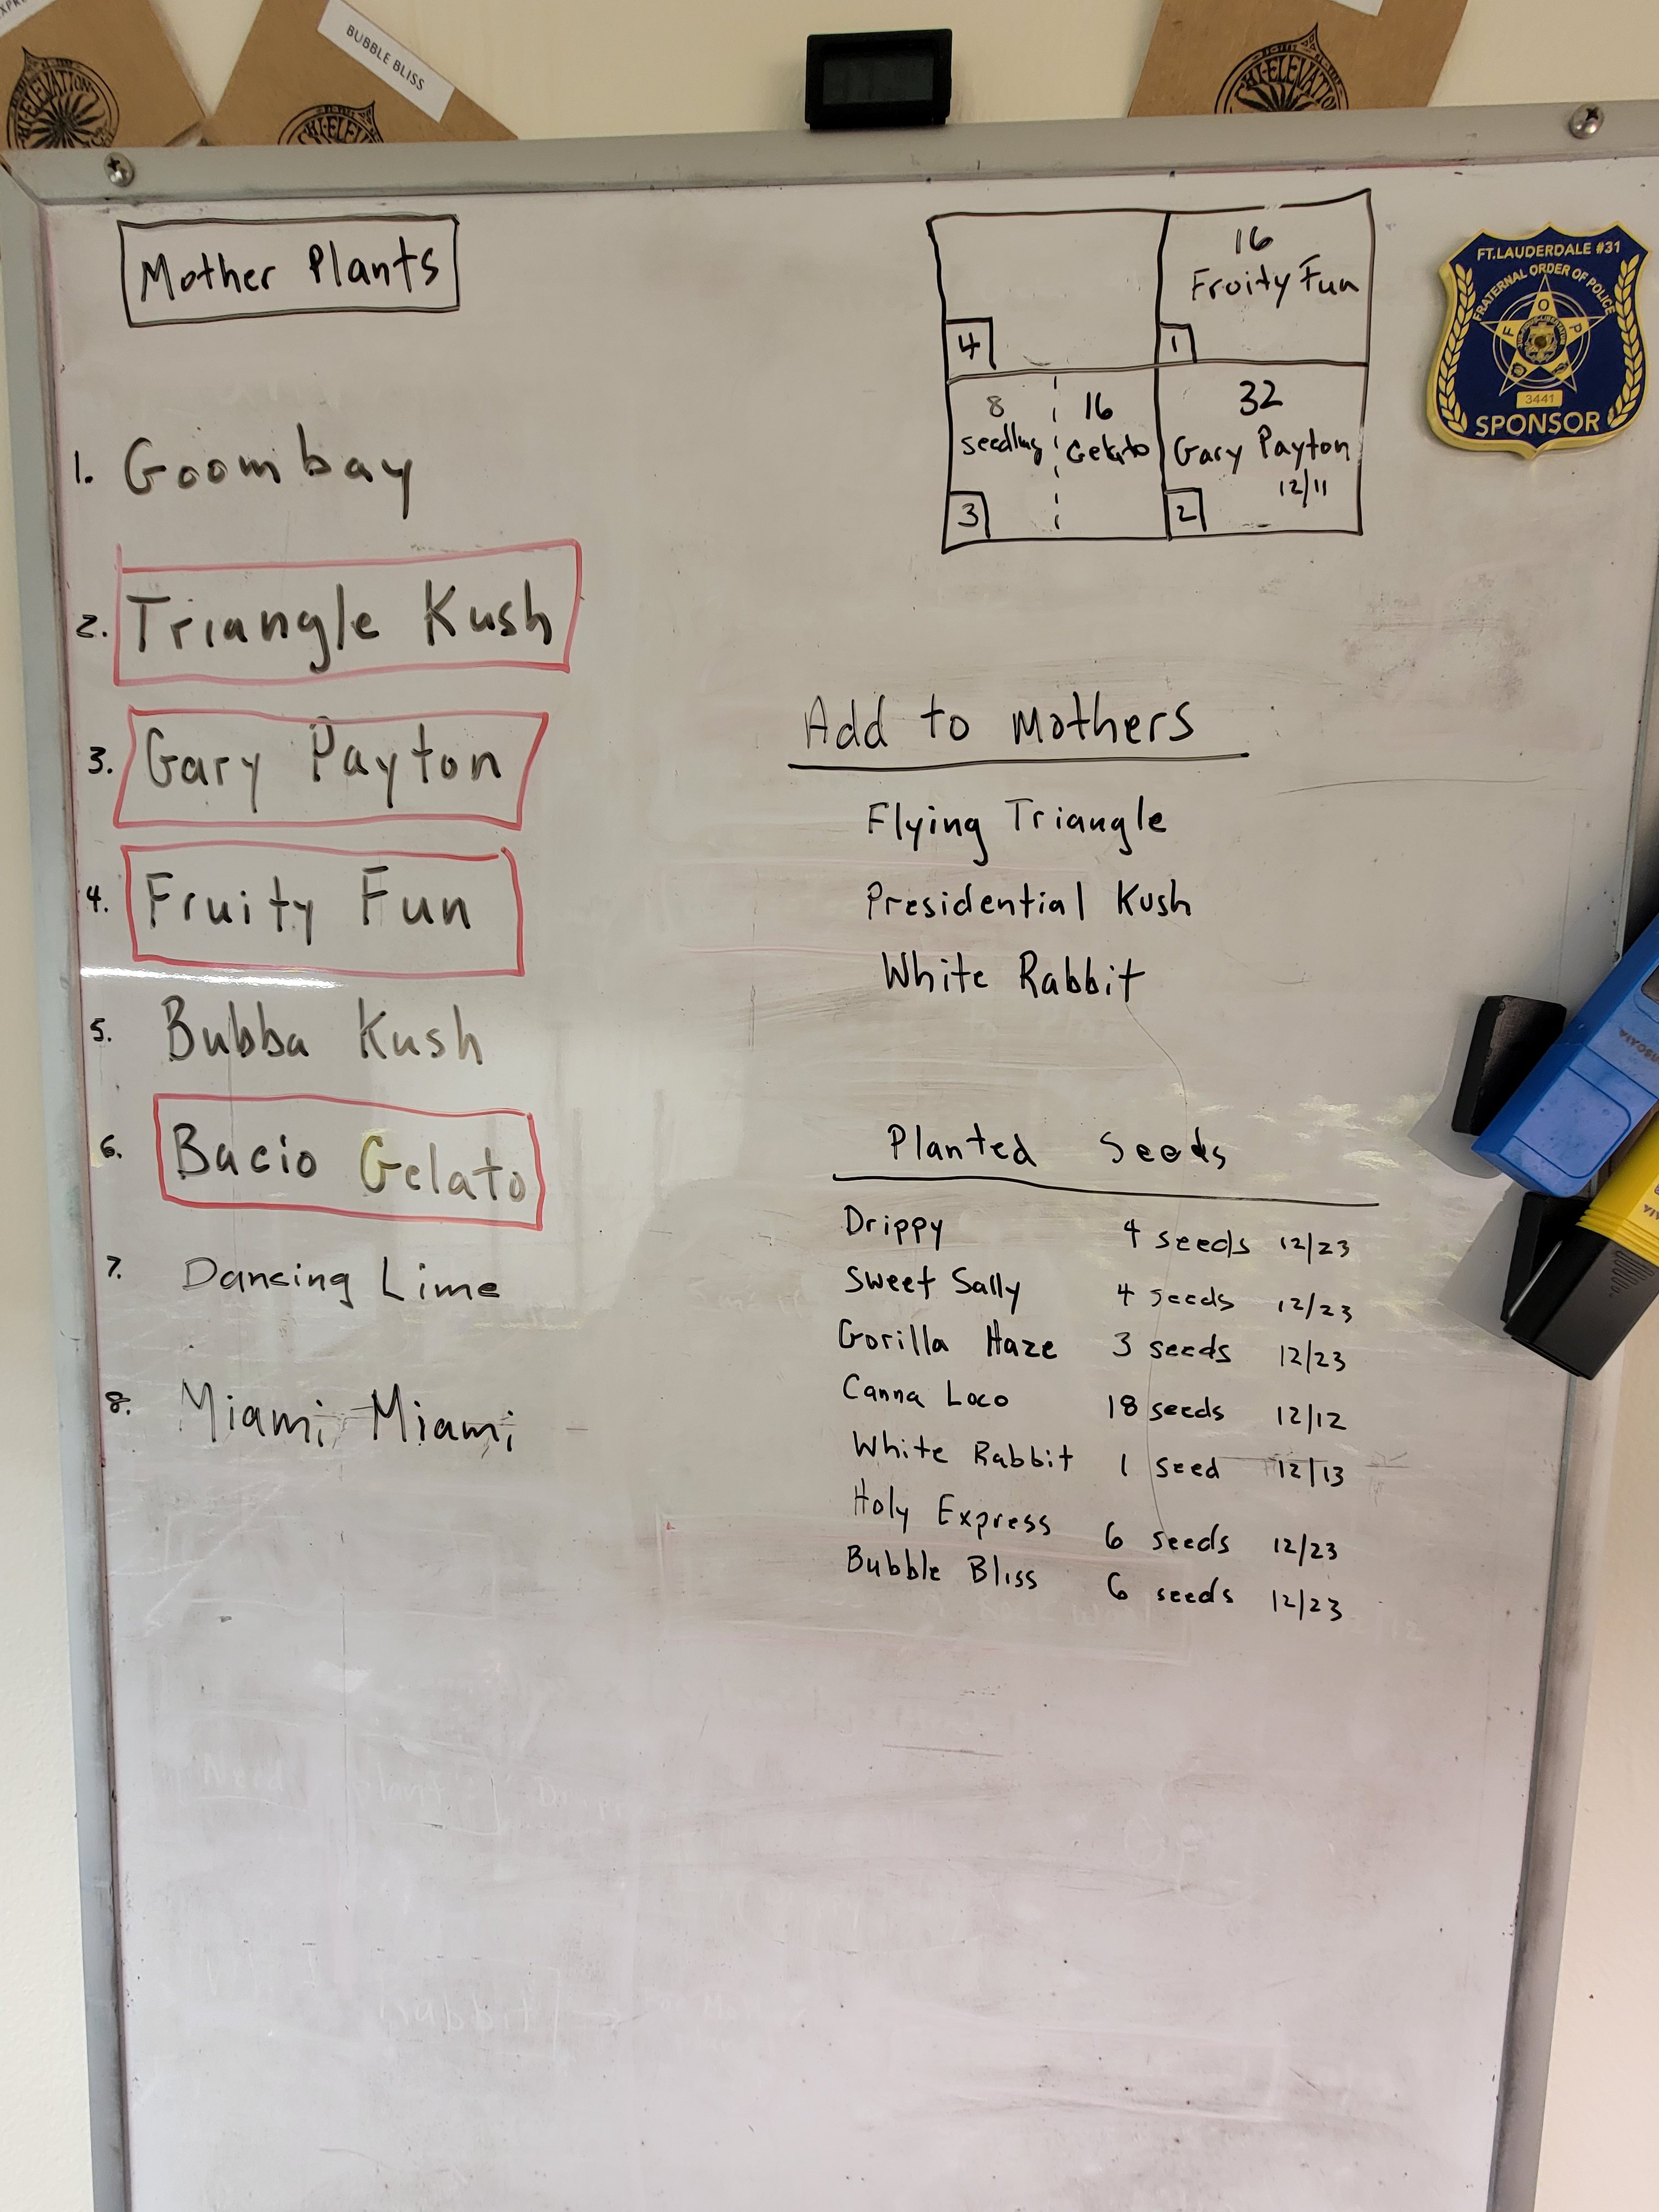 BUBBLE BLISS
Mother Plants
1. Goombay
2. Triangle Kush
3. Gary Payton
4. Fruity Fun
5. Bubba Kush
6. Bacio Gelato
7. Dancing Lime
8. Miami Miami
16
Fruity Fun
4
1
8
seedling
16
Gelato
32
Gary Payton
12/11
3
2
FT. LAUDERDALE #31
FRATERNAL ORDER OF POLICE
F O P
3441
SPONSOR
Add to Mothers
Flying Triangle
Presidential Kush
White Rabbit
Planted Seeds
Drippy 4 seeds 12/23
Sweet Sally 4 seeds 12/23
Gorilla Haze 3 seeds 12/23
Canna Loco 18 seeds 12/12
White Rabbit 1 seed 12/13
Holy Express 6 seeds 12/23
Bubble Bliss 6 seeds 12/23